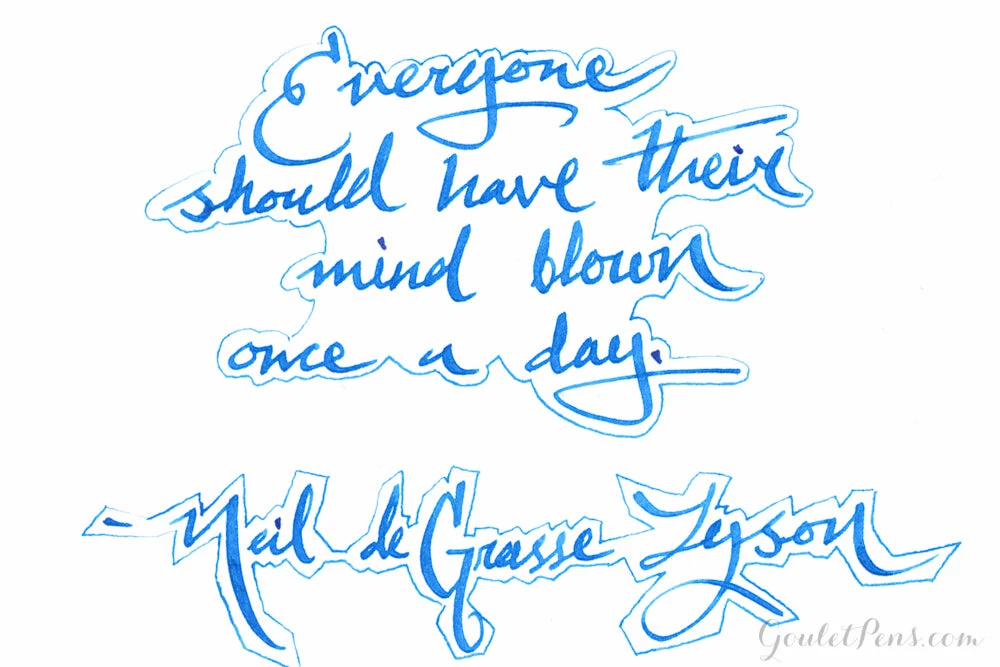 Everyone
should have their
mind blown
once a day.
- Neil deGrasse Tyson
GouletPens.com